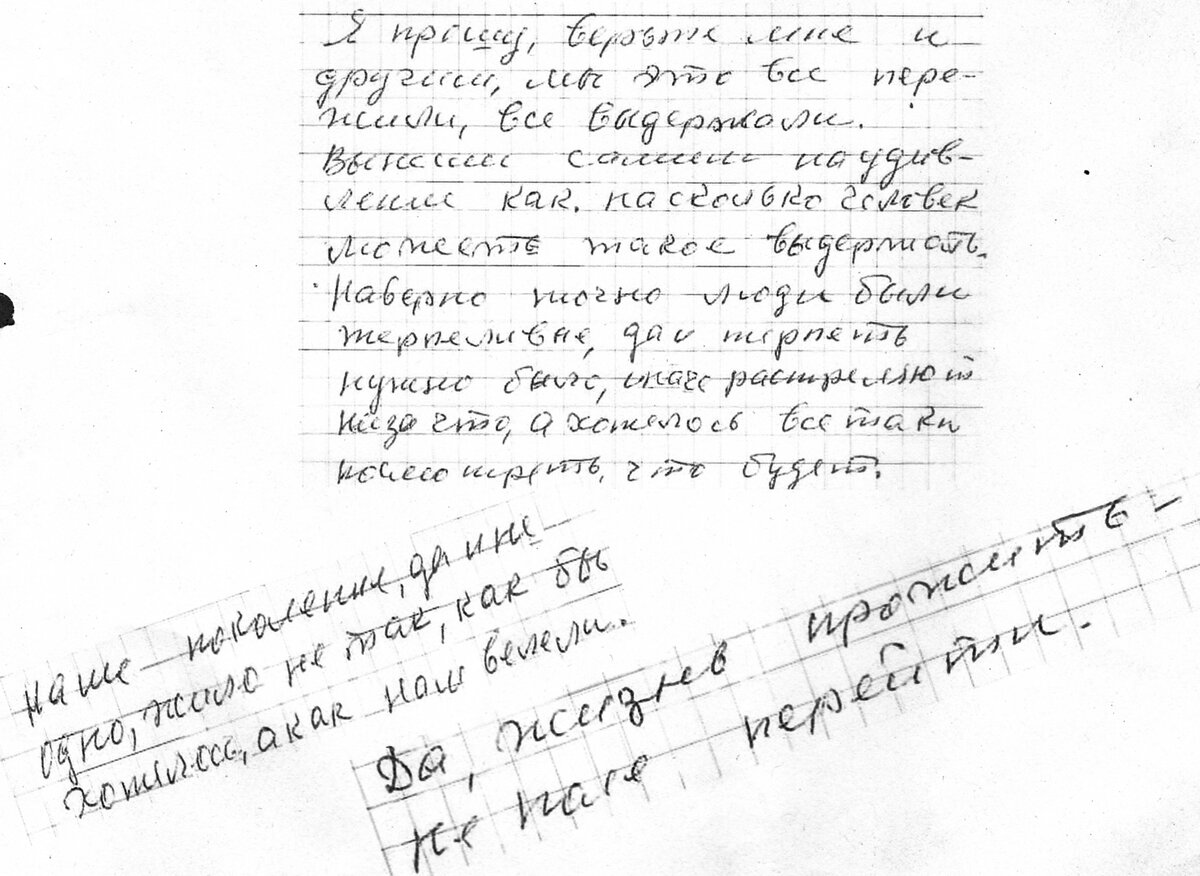 Я прошу, верьте мне и
другим, мы это все пере-
жили, все выдержали.
Вынесли самим на удив-
ление как. насколько человек
можеть такое выдержать.
Наверно точно люди были
терпеливые, да и терпеть
нужно было, иначе растреляют
низа что, а хотелось все таки
посмотреть, что будет.
Наше поколение, да и не
одно, жило не так, как бы
хотелось, а как нам велели.
Да, жизнь прожить -
не поле перейти.